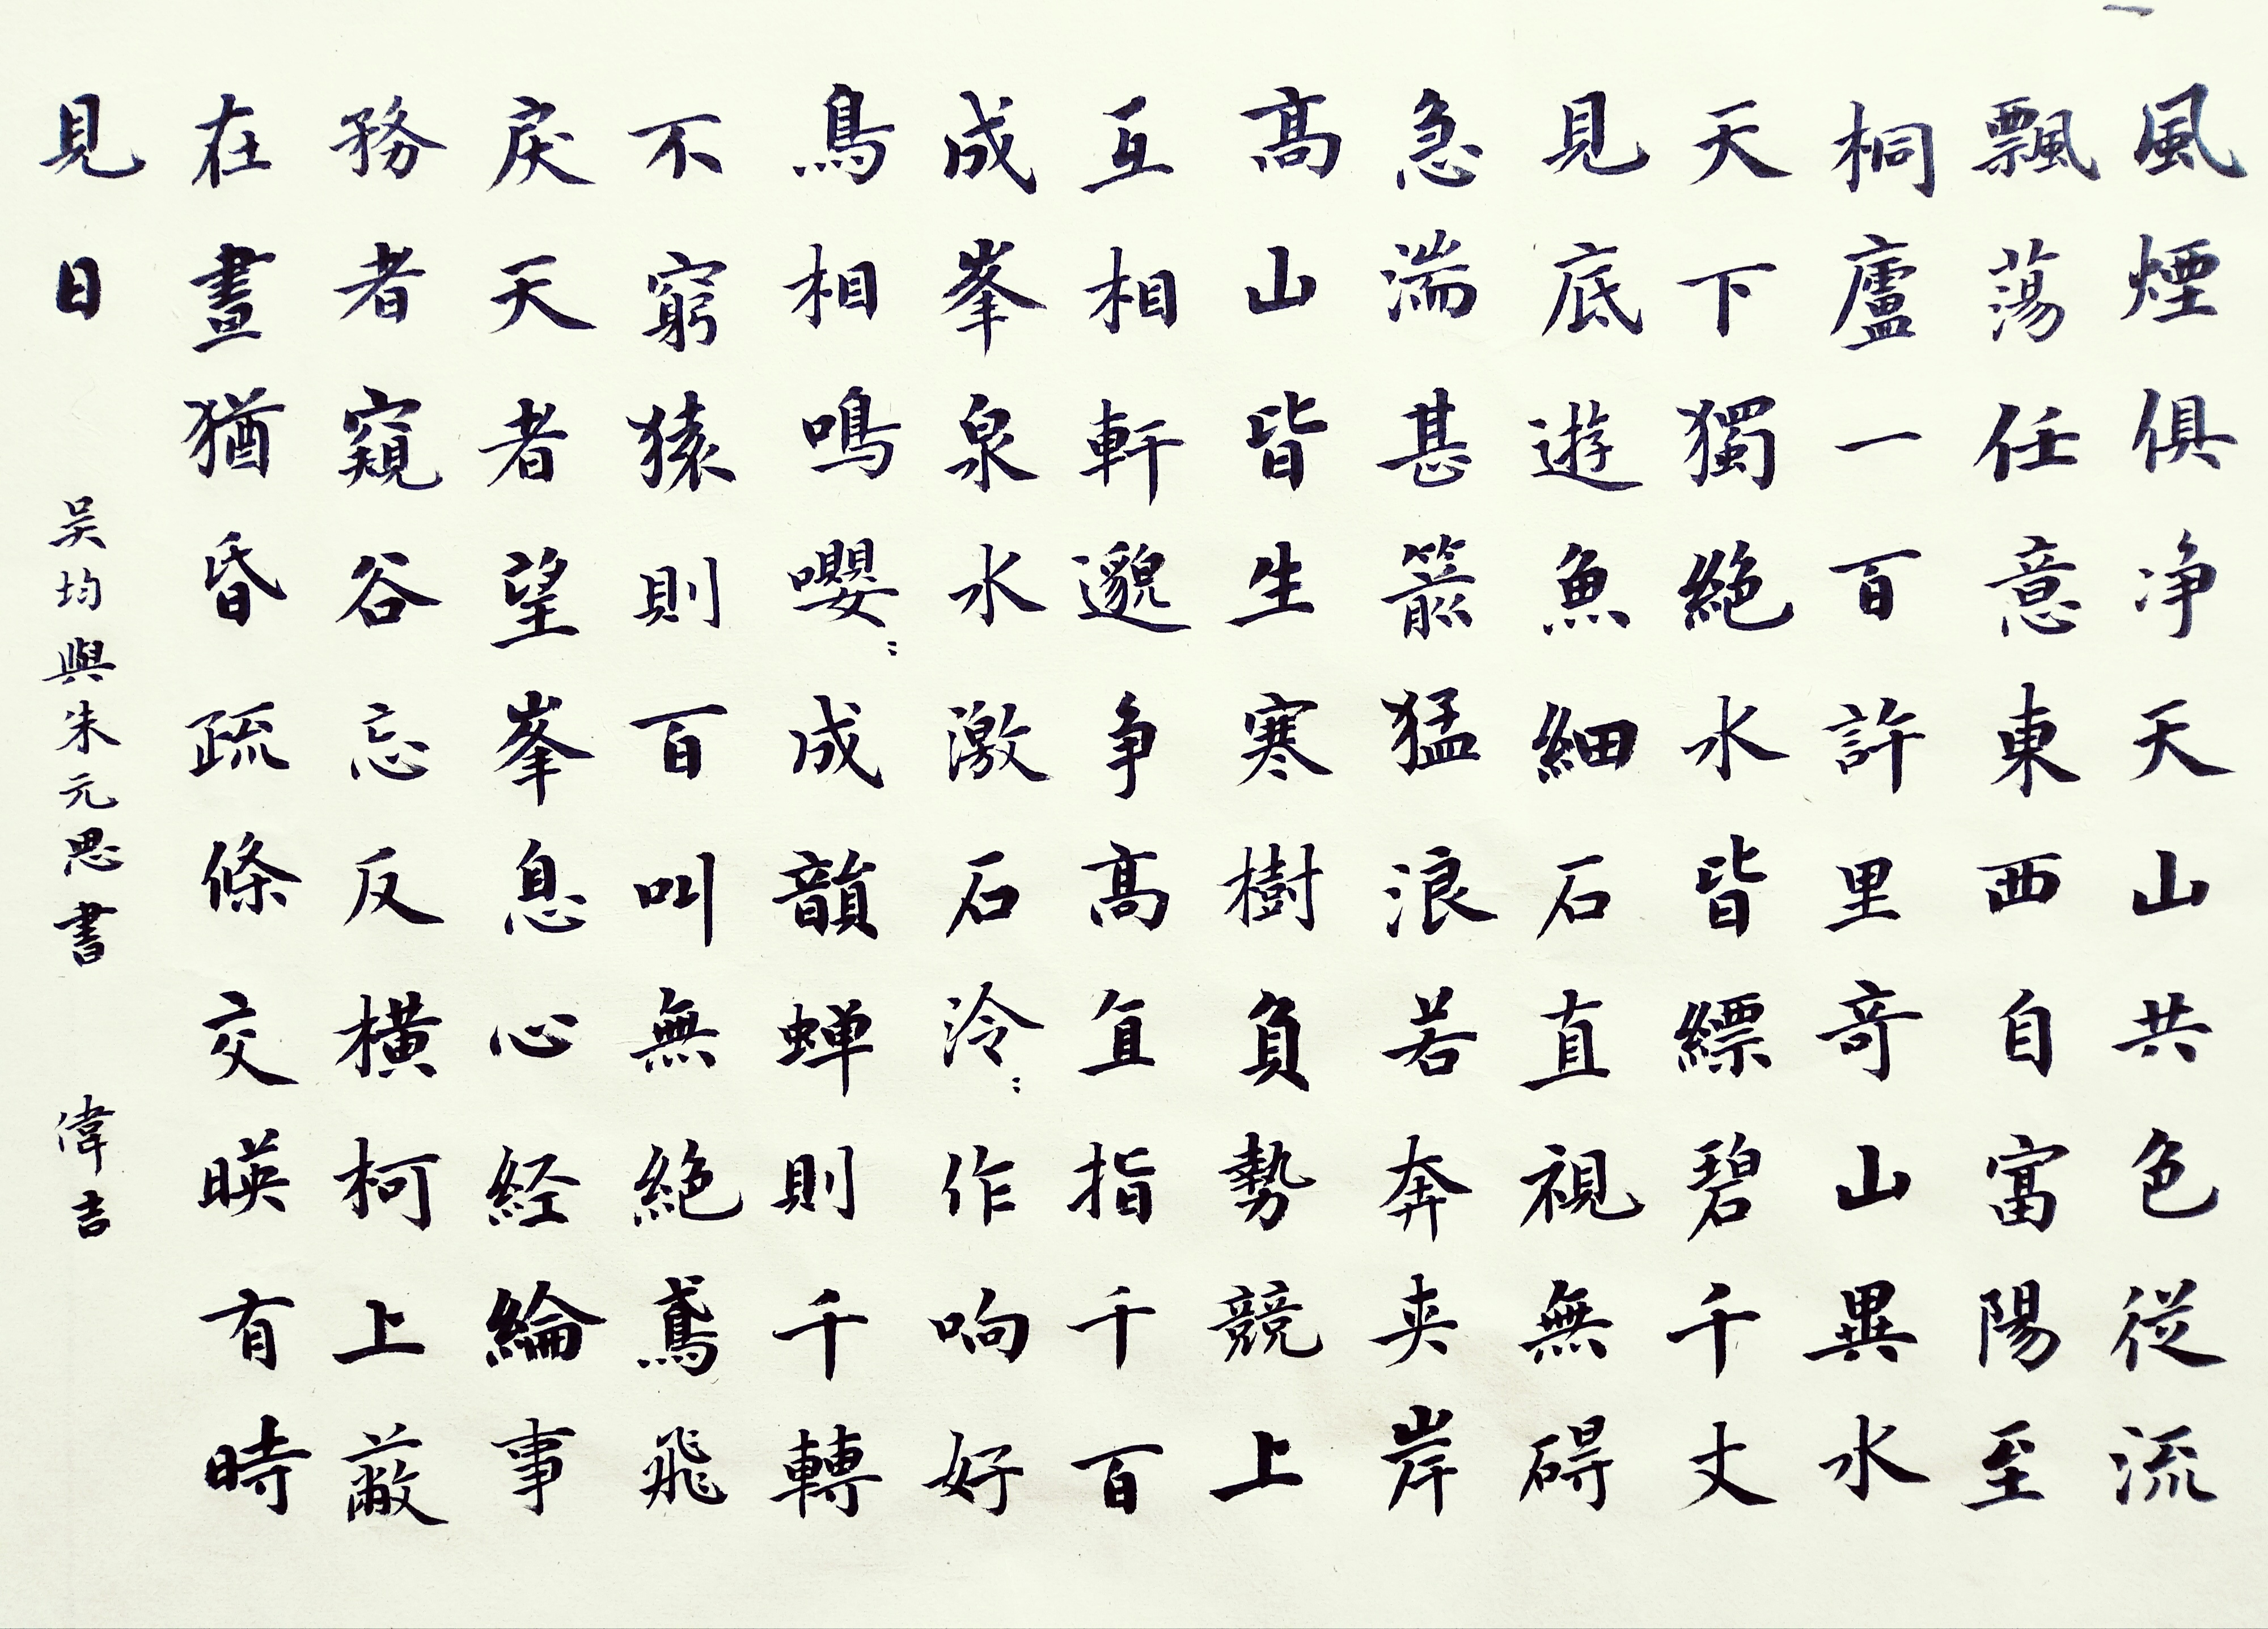 風煙俱净天山共色從流
飄蕩任意東西自富陽至
桐廬一百許里奇山異水
天下獨絶水皆縹碧千丈
見底遊魚細石直視無碍
急湍甚箭猛浪若奔夹岸
高山皆生寒樹負勢競上
互相軒邈争高直指千百
成峯泉水激石泠〻作响好
鳥相鳴嚶〻成韻蝉則千轉
不窮猿則百叫無絶鳶飛
戾天者望峯息心経綸事
務者窺谷忘反横柯上蔽
在晝猶昏疏條交暎有時
見日
吴均與朱元思書 偉吉